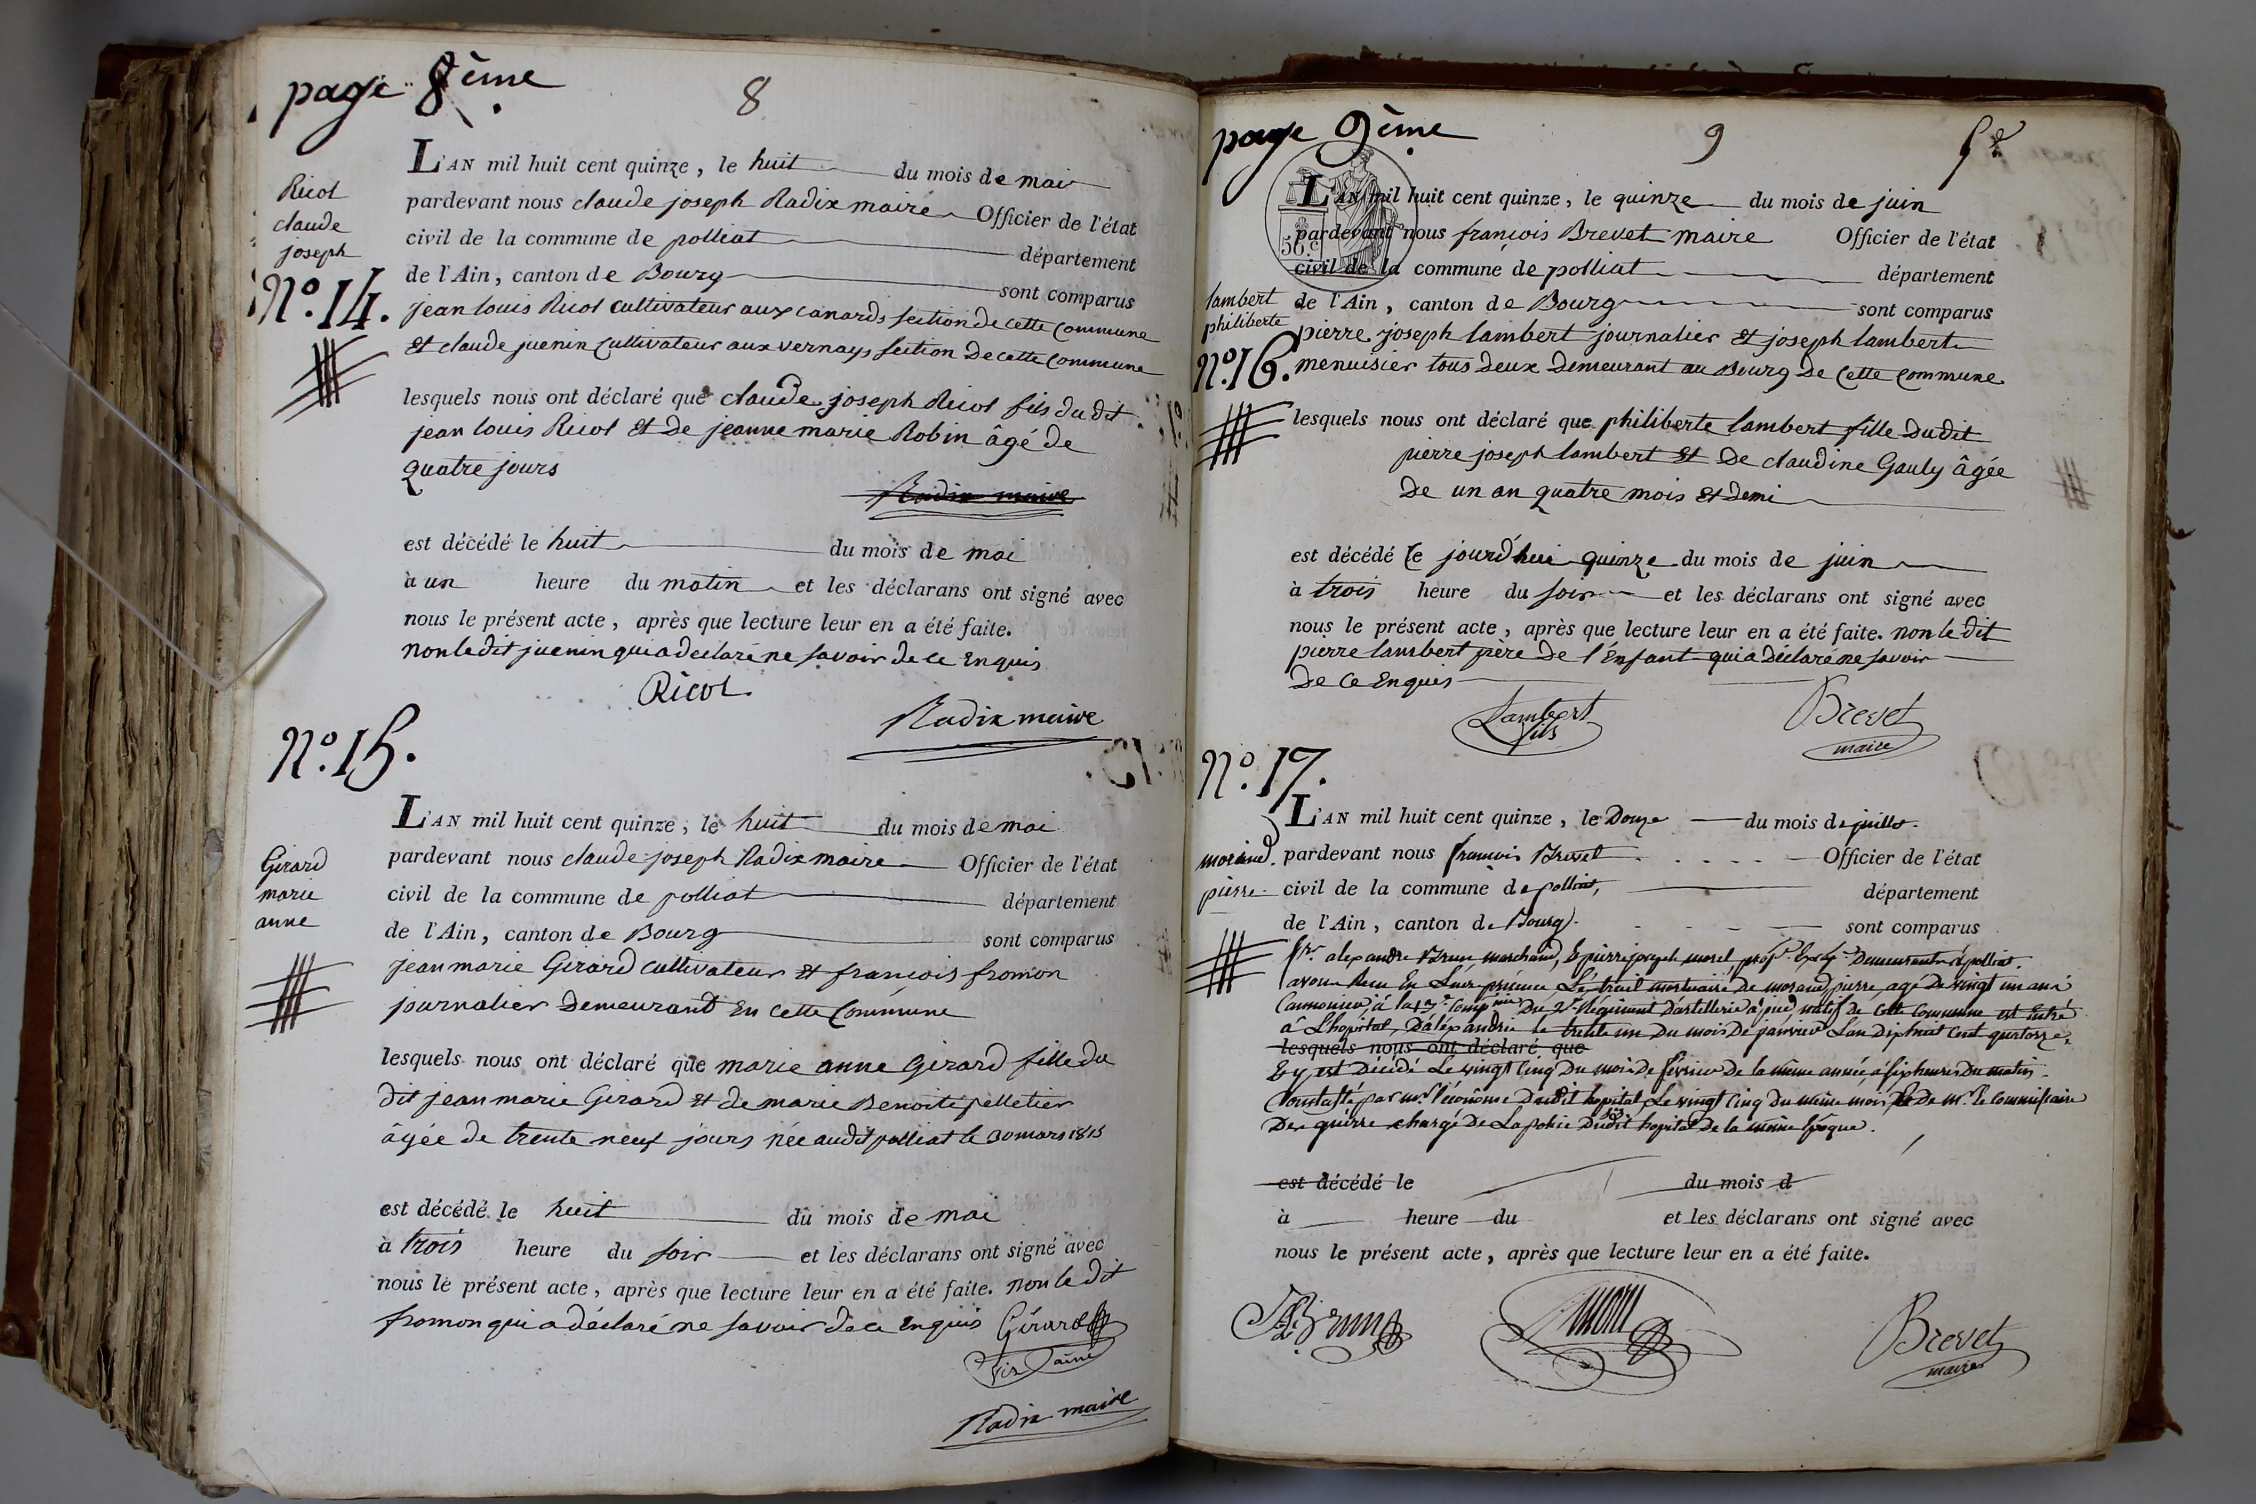 page 8ème
8
Ricol
claude
joseph
N.º 14.
L'AN mil huit cent quinze, le huit du mois de mai
pardevant nous claude joseph Radix maire Officier de l'état
civil de la commune de polliat département
de l'Ain, canton de Bourg sont comparus
jean louis Ricol cultivateur aux canards section de cette commune
et claude juenin cultivateur aux vernays section de cette commune
lesquels nous ont déclaré que claude joseph Ricol fils du dit
jean louis Ricol et de jeanne marie Robin âgé de
quatre jours
Radix maire
est décédé le huit du mois de mai
à un heure du matin et les déclarans ont signé avec
nous le présent acte, après que lecture leur en a été faite.
non le dit juenin qui a déclaré ne savoir de ce enquis
Ricol
Radix maire
N.º 15.
Girard
marie
anne
L'AN mil huit cent quinze, le huit du mois de mai
pardevant nous claude joseph Radix maire Officier de l'état
civil de la commune de polliat département
de l'Ain, canton de Bourg sont comparus
jean marie Girard cultivateur et françois fromon
journalier demeurant en cette commune
lesquels nous ont déclaré que marie anne Girard fille du
dit jean marie Girard et de marie Benoite pelletier
âgée de trente neuf jours née audit polliat le 30 mars 1815
est décédé le huit du mois de mai
à trois heure du soir et les déclarans ont signé avec
nous le présent acte, après que lecture leur en a été faite. non le dit
fromon qui a déclaré ne savoir de ce enquis Girard
fils aîné
Radix maire
page 9ème
9
50 c
lambert
philiberte
nº. 16.
L'AN mil huit cent quinze, le quinze du mois de juin
pardevant nous françois Brevet maire Officier de l'état
civil de la commune de polliat département
de l'Ain, canton de Bourg sont comparus
pierre joseph lambert journalier et joseph lambert
menuisier tous deux demeurant au Bourg de cette commune
lesquels nous ont déclaré que philiberte lambert fille dudit
pierre joseph lambert et de claudine Gauly âgée
de un an quatre mois et demi
est décédé le jourd'hui quinze du mois de juin
à trois heure du soir et les déclarans ont signé avec
nous le présent acte, après que lecture leur en a été faite. non le dit
pierre lambert père de l'enfant qui a déclaré ne savoir
de ce enquis
Lambert
fils
Brevet
maire
N.º 17.
morand
pierre
L'AN mil huit cent quinze, le Douze du mois de juillet
pardevant nous francois Brevet Officier de l'état
civil de la commune de polliat, département
de l'Ain, canton de Bourg sont comparus
alexandre Brun marchand, & pierre joseph morel, Demeurants à polliat.
avons Reçu En Leur présence L'éxtrait mortuaire de morand pierre, agé De vingt un ans
Cannonier, à la 17e Compnie Du 2e Régiment D'artillerie à pied, natif de Cette Commune est Entré
à L'hopital, D'aléxandrie le trente un Du mois De janvier L'an Dix huit Cent quatorze,
lesquels nous ont déclaré que
& y est Décédé Le vingt Cinq Du mois de février de la même année, à six heures Du matin.
Constaté par mr. l'économe Dudit hopital Le vingt Cinq Du même mois & De mr. le Commissaire
Des guerre chargé De La police Dudit hopital De la même Epoque.
est décédé le du mois d
à heure du et les déclarans ont signé avec
nous le présent acte, après que lecture leur en a été faite.
Brun
Brevet
maire